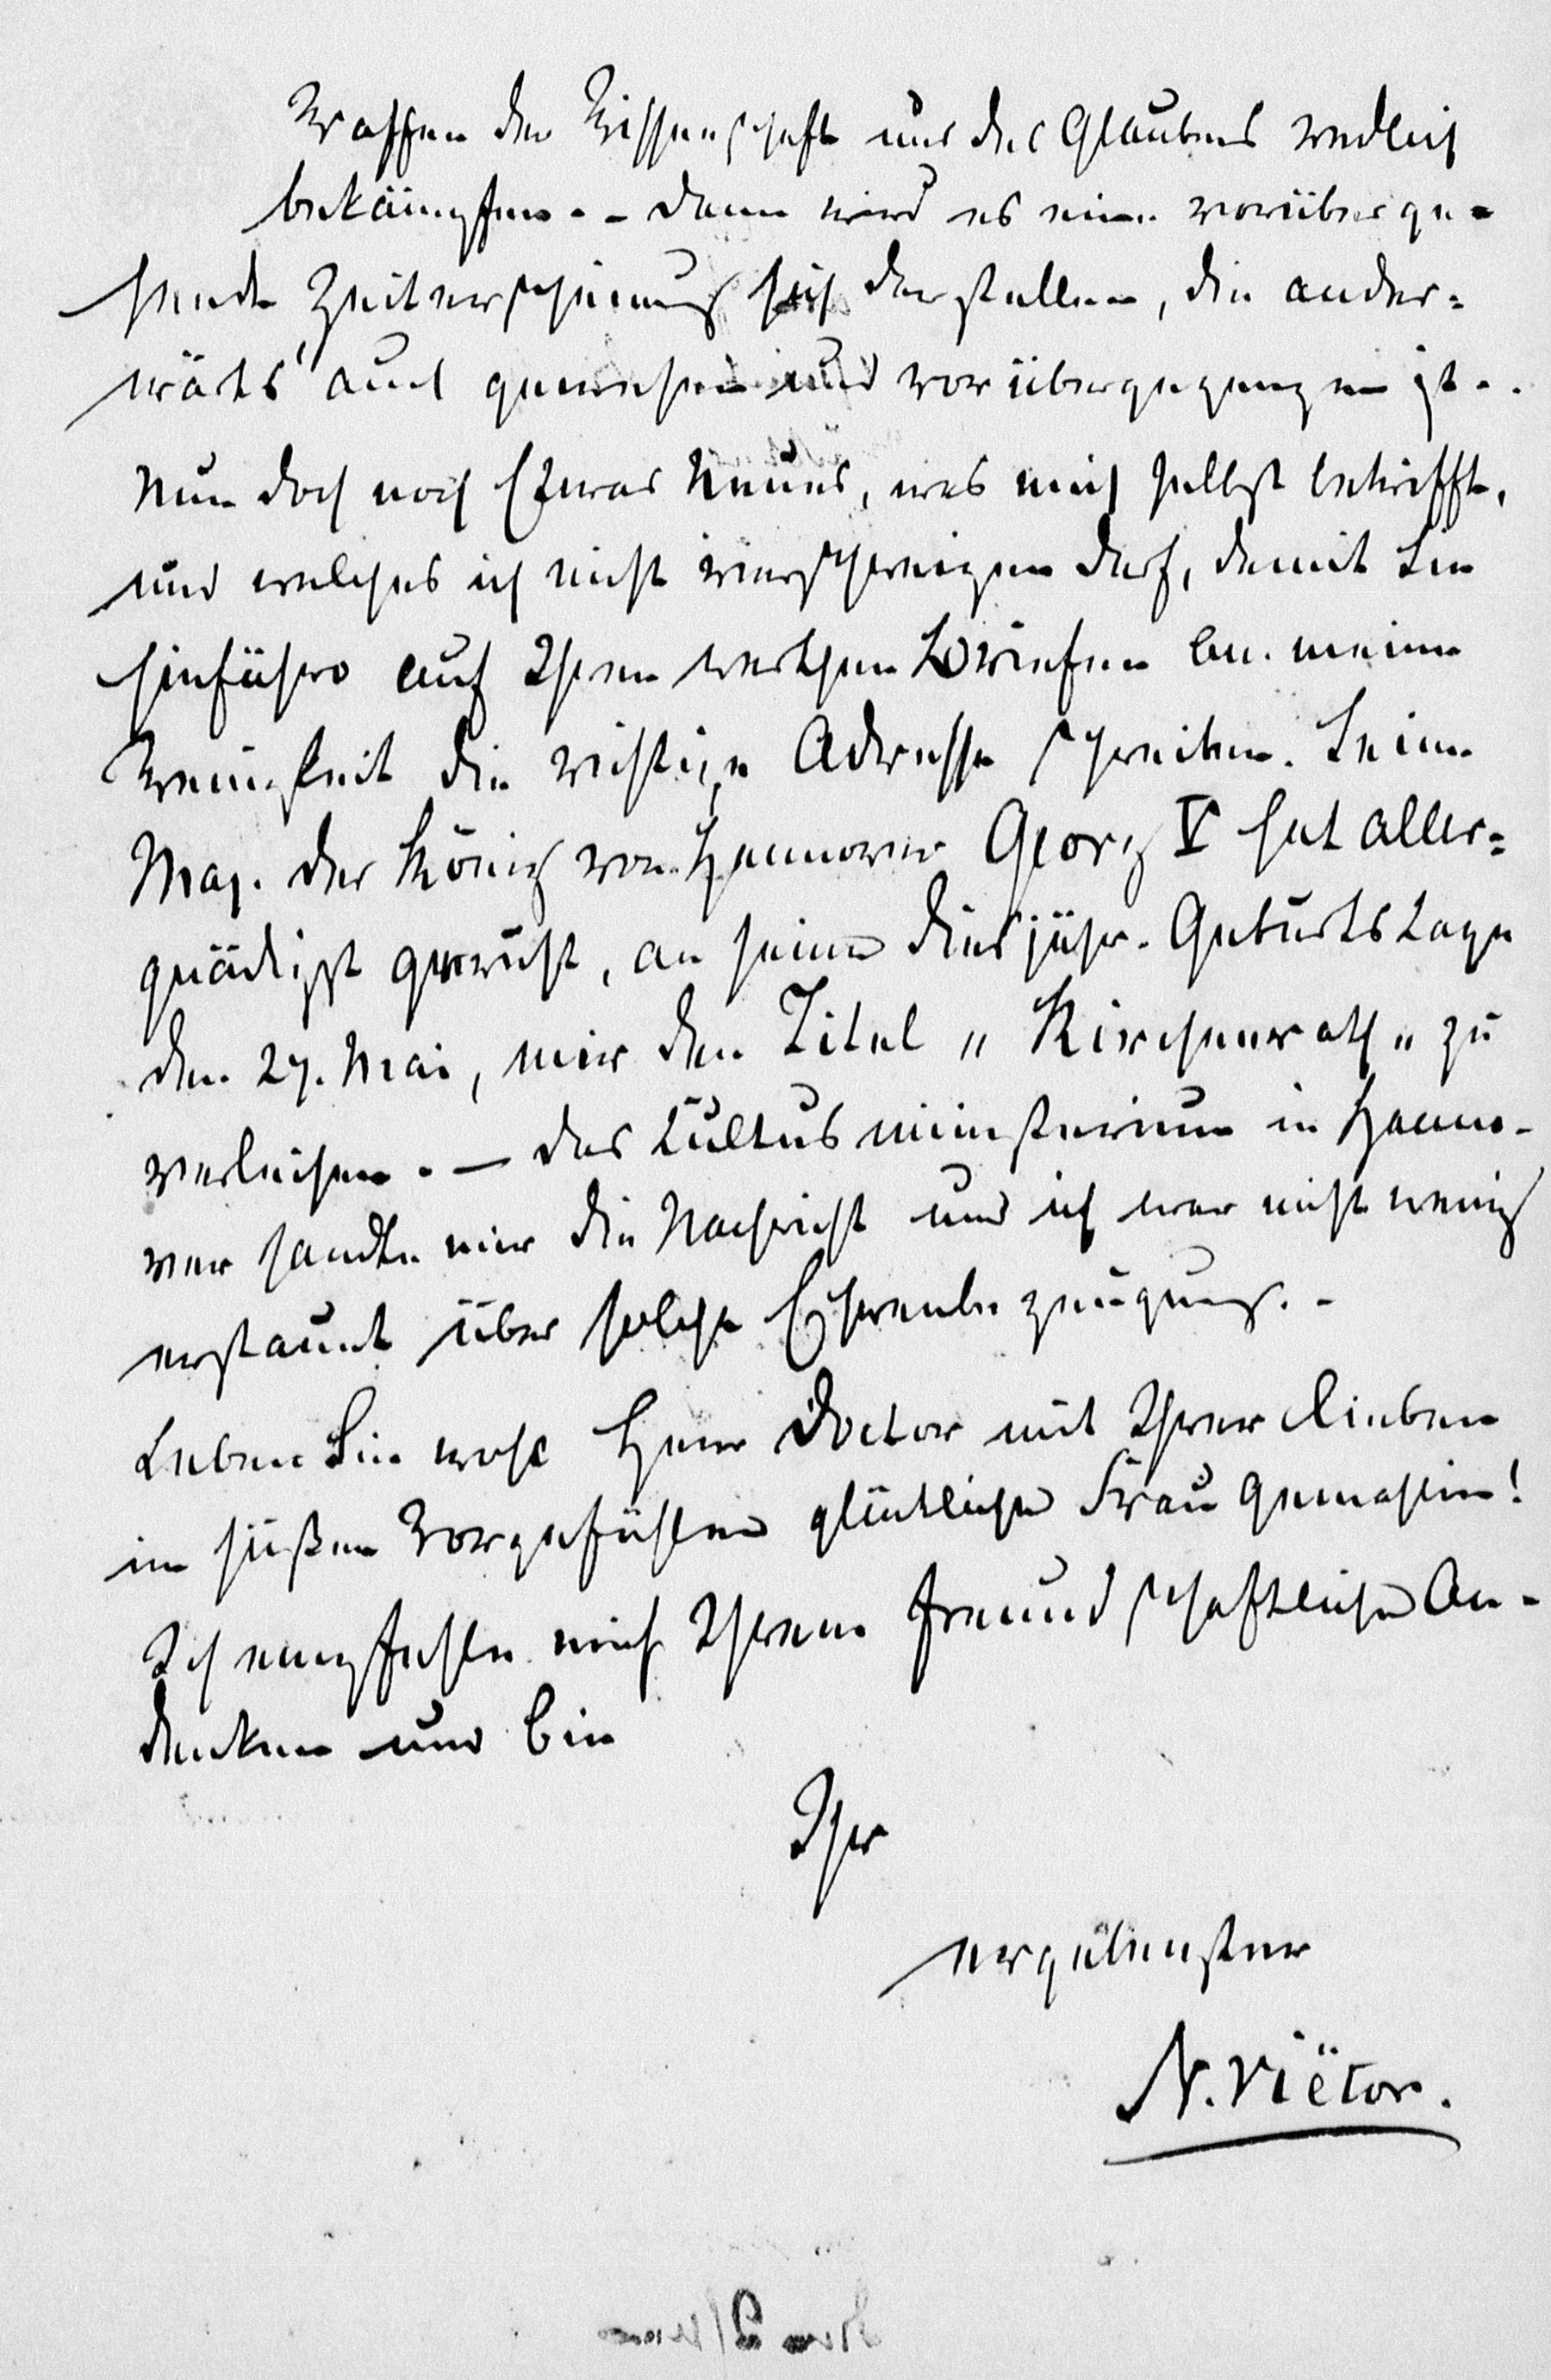 Waffen der Wissenschaft und des Glaubens redlich
bekämpfen. - dann wird es eine vorüberge-
hende Zeiterscheinung sich darstellen, die ander-
wärts auch gewesen und vorübergegangen ist. -
Nun doch noch Etwas Neues, was mich selbst betrifft,
und welches ich nicht verschweigen darf, damit Sie
hinführo auf Ihren werthen Briefen an meine
Wenigkeit die richtige Adresse schreiben. Seine
Maj. der König von Hannover Georg V hat aller-
gnädigst geruht, an seinem diesjähr. Geburtstage
den 27. Mai, mir den Titel „Kirchenrath" zu
verleihen. - das Kultusministerium in Hanno-
ver sandte mir die Nachricht und ich war nicht wenig
erstaunt über solche Ehrenbezeugung. -
Leben Sie wohl Herr Doctor mit Ihrer lieben
in süßen Vorgefühlen glücklichen Frau Gemahlin!
Ich empfehle mich Ihrem freundschaftlichen An-
denken und bin
Ihr
ergebenster
N. Viëtor.